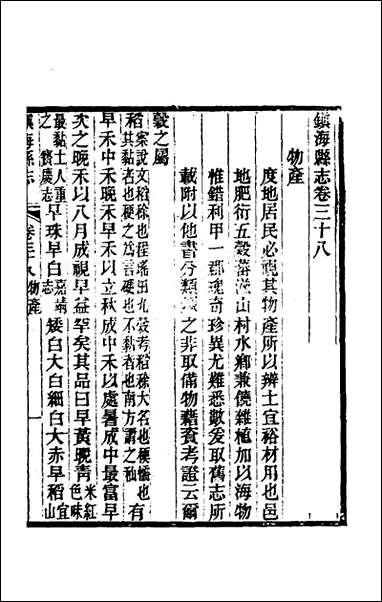 鎮海縣志卷三十八
物產
度地居民必視其物產所以辨土宜裕材用也邑
地肥衍五穀蕃滋山村水鄉兼饒雜植加以海物
惟錯利甲一郡瑰奇珍異尤難悉數爰取舊志所
載附以他書分類之非取備物藉資考證云爾
穀之屬
稻案說文稻稌也程瑤田九穀考稻稌大名也稉糯也有
其黏者也稉之為言硬也不黏者也南方謂之秈
早禾中禾晚禾早禾以立秋成中禾以處暑成中最富早
次之晚禾以八月成視早益罕矣其品曰早黃晚靑米紅色味
最黏土人重之寶慶志早珠早白嘉靖志矮白大白細白大赤早稻宜山
鎮海縣志
卷三十八物產
一